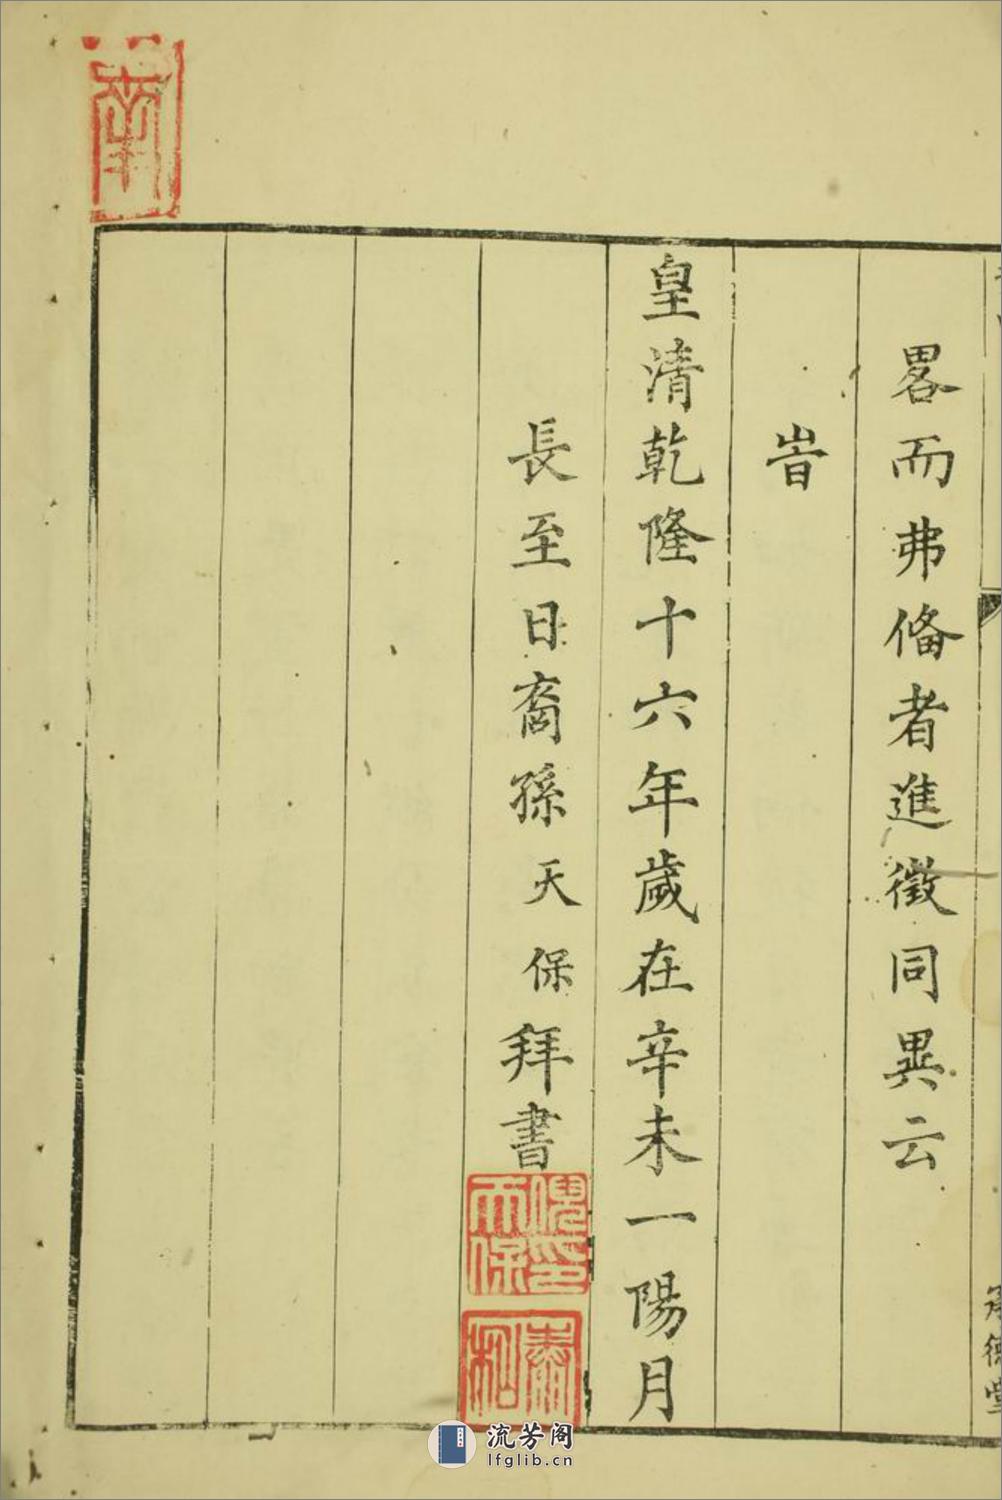 畧而弗俻者進徵同異云
旹
皇清乾隆十六年歲在辛未一陽月
長至日裔孫天保拜書
承德堂
流芳阁
lfglib.cn